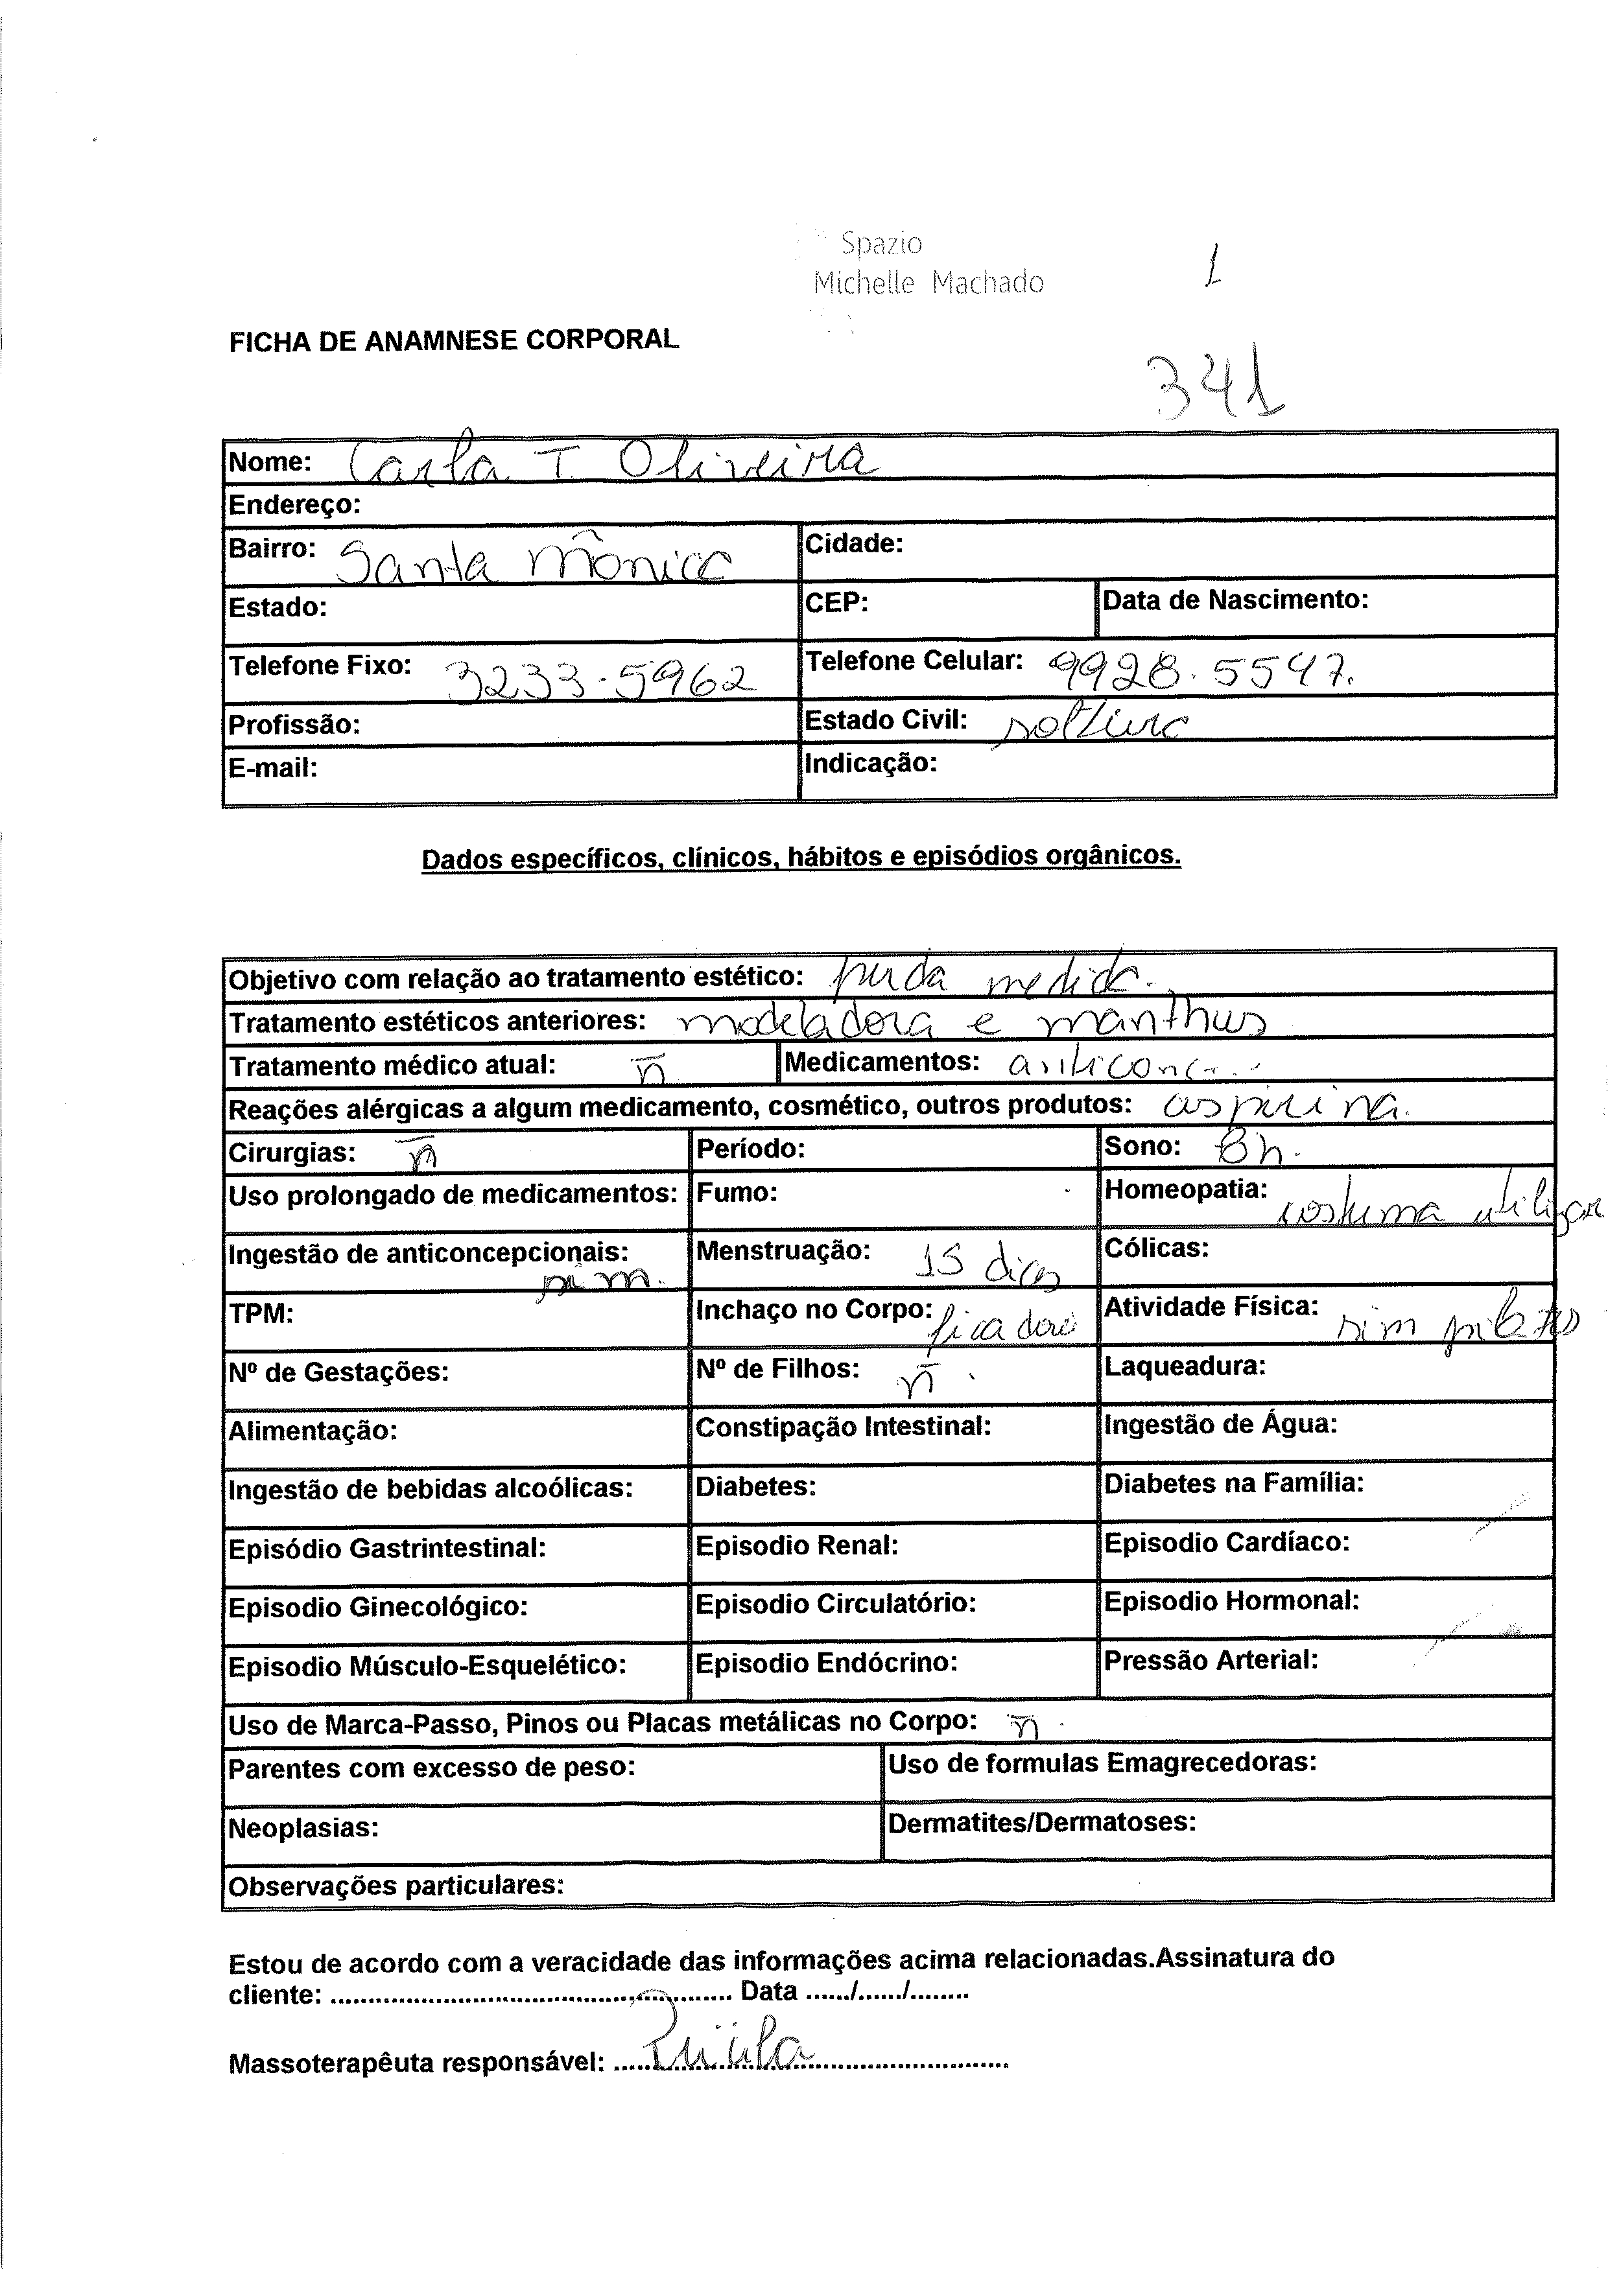 Spazio
Michelle Machado
1
FICHA DE ANAMNESE CORPORAL
341
Nome: Carla T. Oliveira
Endereço:
Bairro: Santa Mônica Cidade:
Estado: CEP: Data de Nascimento:
Telefone Fixo: 3233-5962 Telefone Celular: 9928.5547.
Profissão: Estado Civil: solteira
E-mail: Indicação:
Dados específicos, clínicos, hábitos e episódios orgânicos.
Objetivo com relação ao tratamento estético: perda medida.
Tratamento estéticos anteriores: modeladora e manthus
Tratamento médico atual: ñ Medicamentos: anticonc...
Reações alérgicas a algum medicamento, cosmético, outros produtos: aspirina.
Cirurgias: ñ Período: Sono: 8h.
Uso prolongado de medicamentos: Fumo: Homeopatia: costuma utilizar
Ingestão de anticoncepcionais: sim. Menstruação: 15 dias Cólicas:
TPM: Inchaço no Corpo: fica Atividade Física: sim pilates
Nº de Gestações: Nº de Filhos: ñ. Laqueadura:
Alimentação: Constipação Intestinal: Ingestão de Água:
Ingestão de bebidas alcoólicas: Diabetes: Diabetes na Família:
Episódio Gastrintestinal: Episodio Renal: Episodio Cardíaco:
Episodio Ginecológico: Episodio Circulatório: Episodio Hormonal:
Episodio Músculo-Esquelético: Episodio Endócrino: Pressão Arterial:
Uso de Marca-Passo, Pinos ou Placas metálicas no Corpo: ñ.
Parentes com excesso de peso: Uso de formulas Emagrecedoras:
Neoplasias: Dermatites/Dermatoses:
Observações particulares:
Estou de acordo com a veracidade das informações acima relacionadas.Assinatura do
cliente: ...................................................... Data ....../....../........
Massoterapêuta responsável: .....................................................